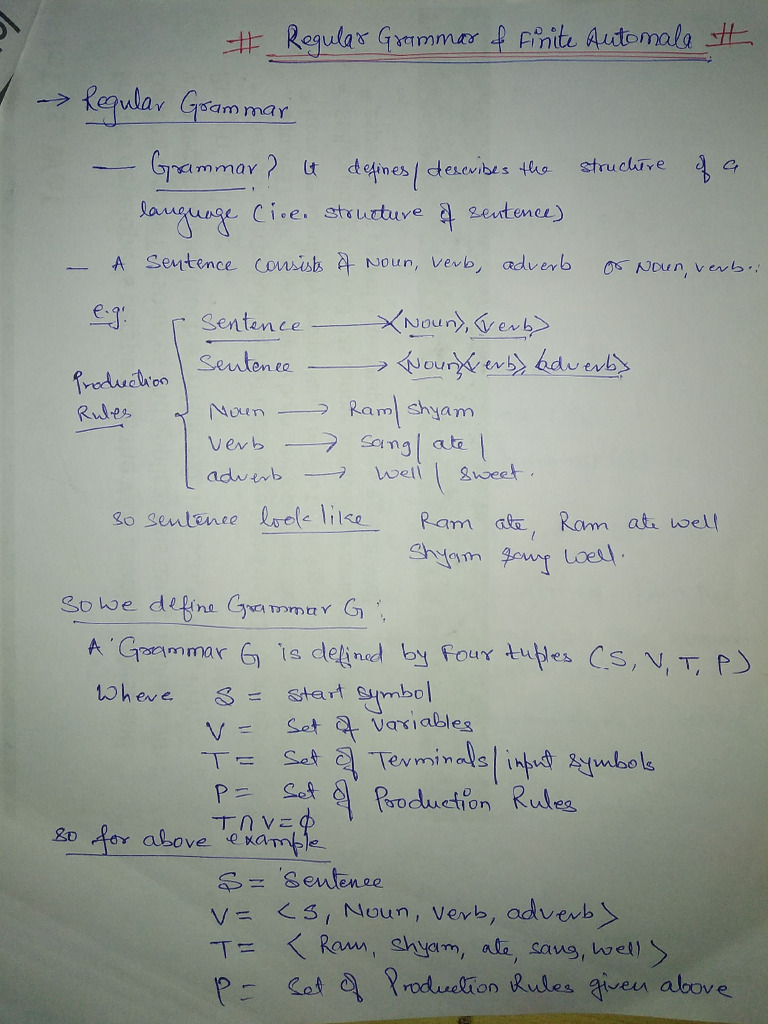 # Regular Grammar & Finite Automata #
→ Regular Grammar
— Grammar? It defines/describes the structure of a
language (i.e. structure of sentence)
— A sentence consists of Noun, verb, adverb or Noun, verb..
e.g:
Sentence → <Noun>, <verb>
Sentence → <Noun><verb>, <adverb>
Production Rules
Noun → Ram/shyam
verb → sang/ ate /
adverb → well / sweet.
so sentence look like Ram ate, Ram ate well
Shyam sang well.
So we define Grammar G:
A Grammar G is defined by Four tuples (S, V, T, P)
Where S = start symbol
V = Set of variables
T = Set of Terminals/input symbols
P = Set of Production Rules
T∩V=ϕ
so for above example
S = Sentence
V = <S, Noun, verb, adverb>
T = < Ram, shyam, ate, sang, well >
P = Set of Production Rules given above